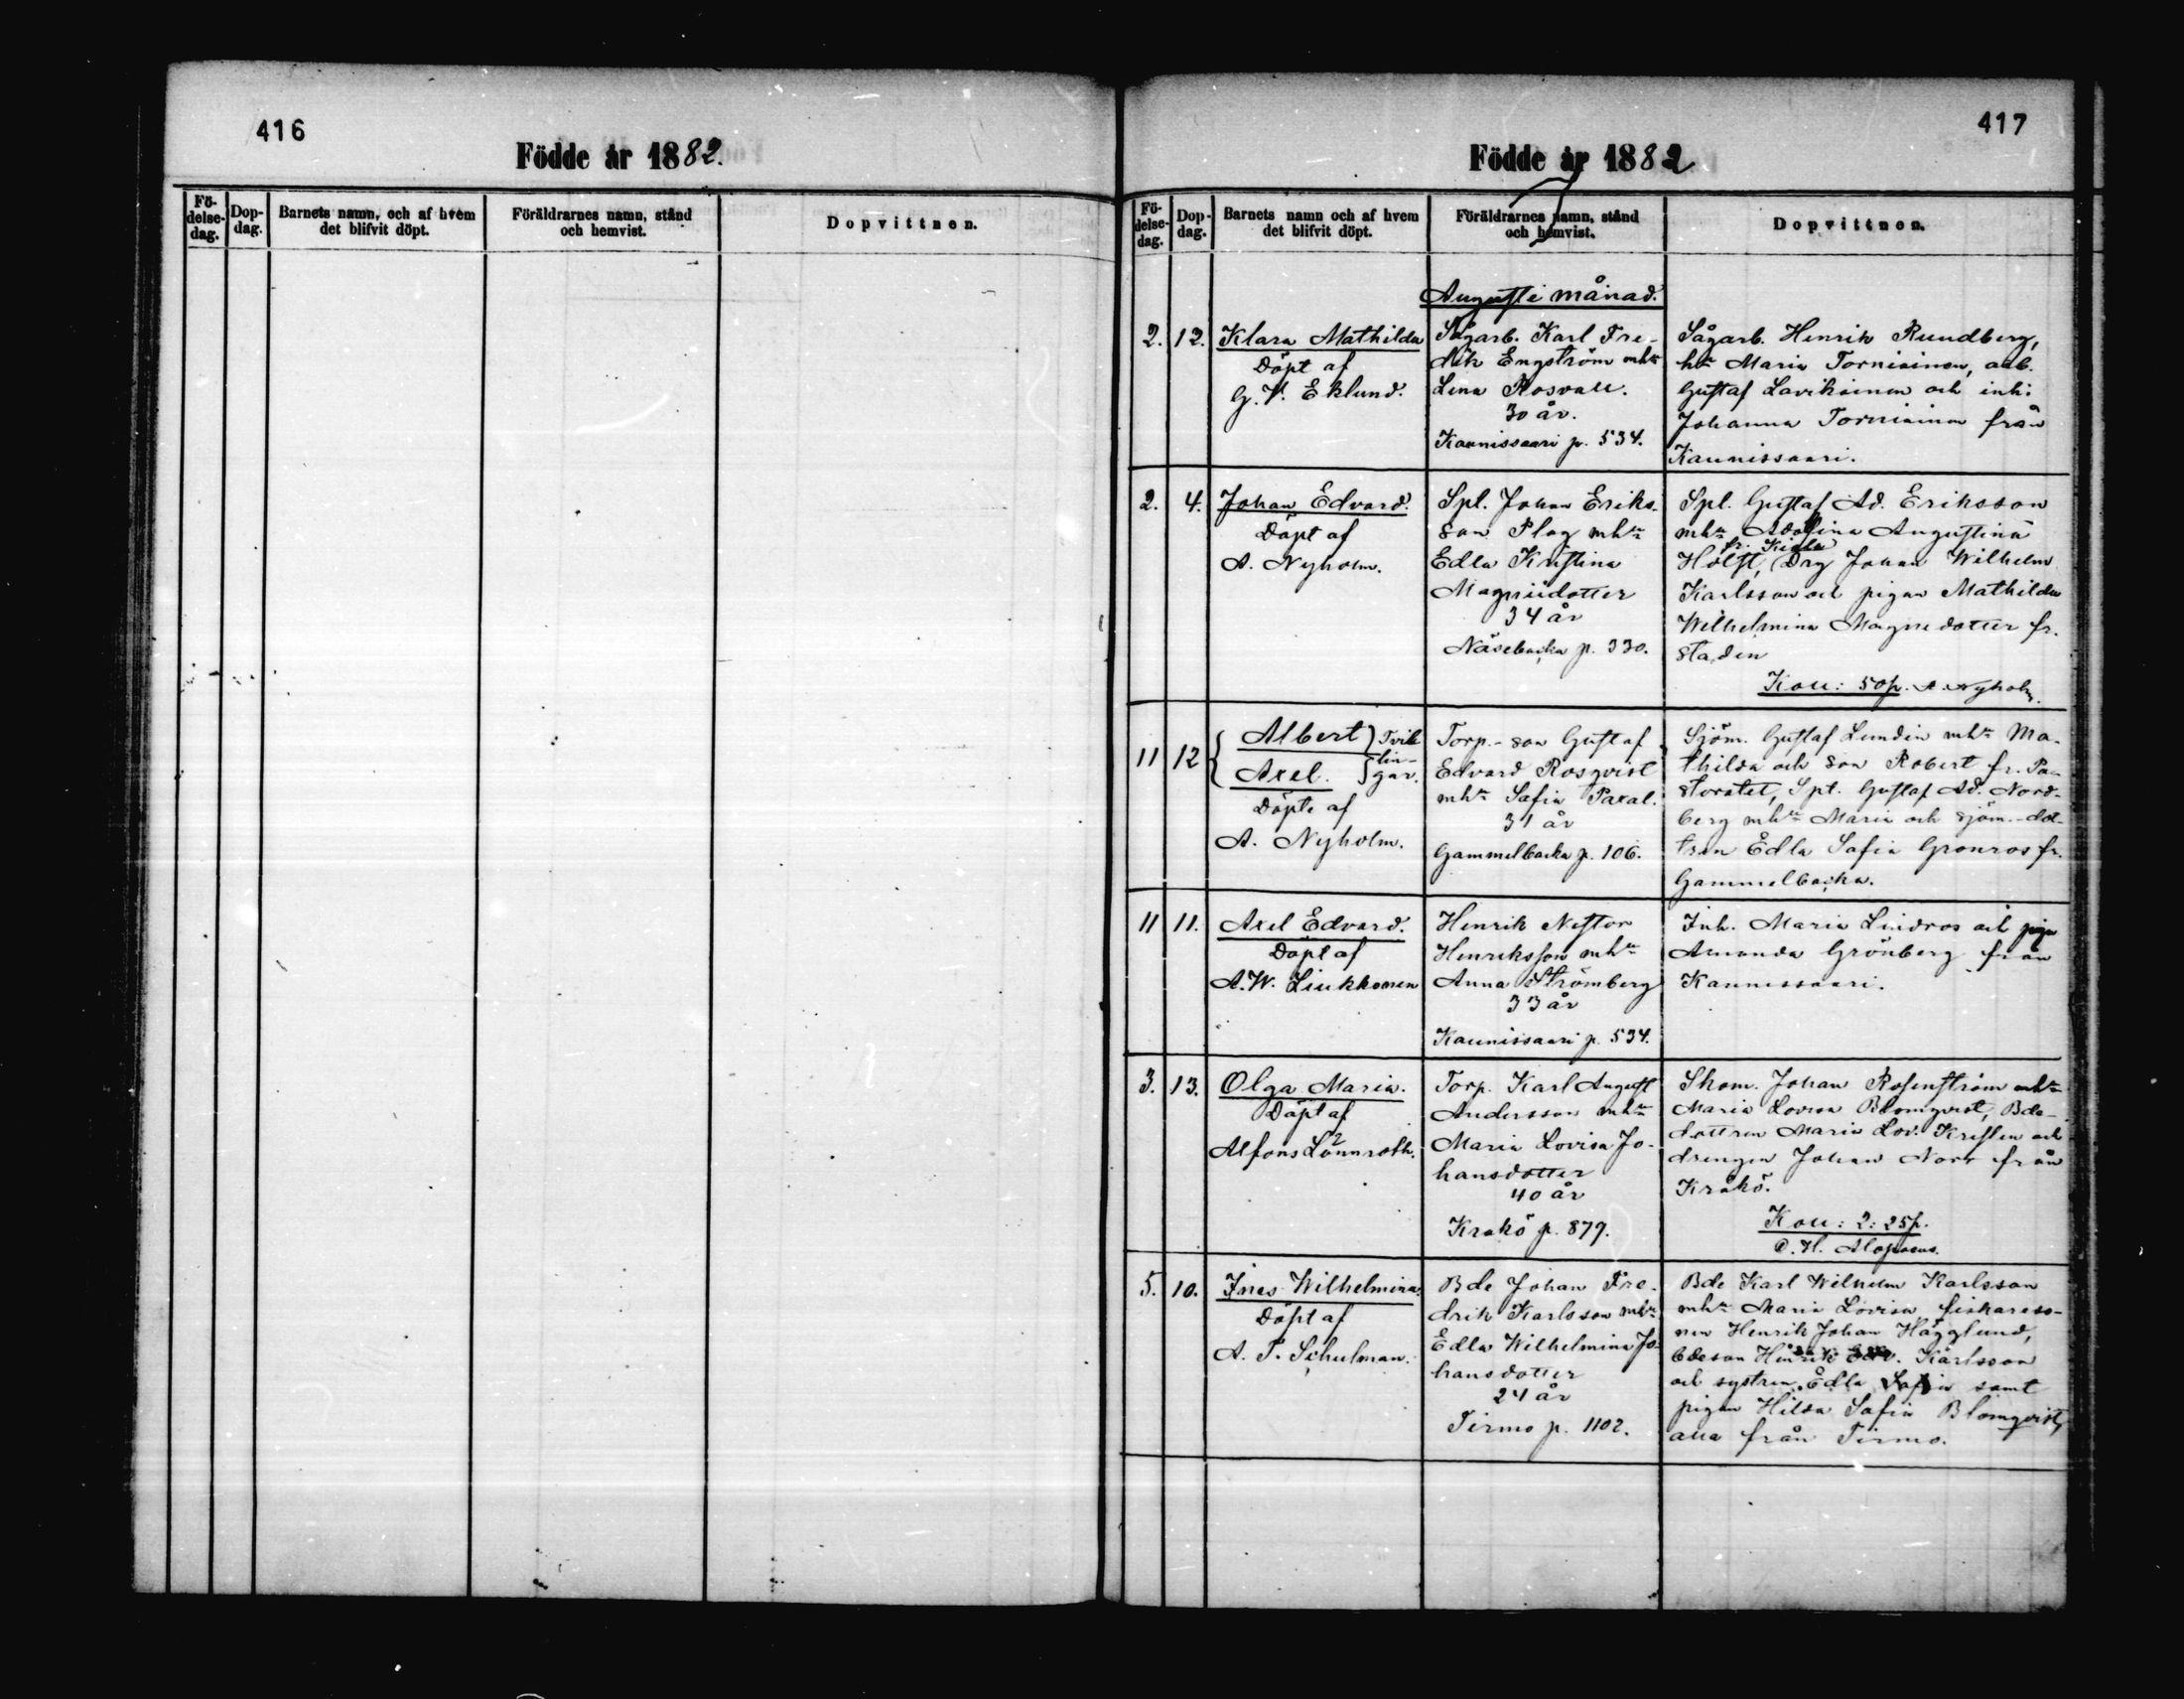 416
Födde år 1882.
Fö-
delse-
dag.
Dop-
dag.
Barnets namn, och af hvem
det blifvit döpt.
Föräldrarnes namn, stånd
och hemvist.
Dopvittnen.
417
Födde år 1882
Fö-
delse-
dag.
Dop-
dag.
Barnets namn och af hvem
det blifvit döpt.
Föräldrarnes namn, stånd
och hemvist.
Dopvittnen.
Augusti månad.
2. 12.
Klara Mathilda
Döpt af
G. V. Eklund.
Sågarb. Karl Fre-
drik Engström mhu
Lena Rosvall.
30 år.
Kaunissaari p. 534.
Sågarb. Henrik Rundberg,
hu Maria Torniainen, arb.
Gustaf Lavikainen och inh:
Johanna Torniainen från
Kaunissaari.
2. 4.
Johan Edvard.
Döpt af
A. Nyholm.
Spl. Johan Eriks-
son Plog mhu
Edla Kristina
Magnidotter
34 år
Näsebacka p. 330.
Spl. Gustaf Ad. Eriksson
mhu Adolfina Augustina
fr. Kiala
Holst, Drg Johan Wilhelm
Karlsson och pigan Mathilda
Wilhelmina Magnedotter fr.
staden
Koll: 50 p. A. Nyholm.
11 12
Albert
Axel.
Tvil-
lin-
gar.
Döpte af
A. Nyholm.
Torp.-son Gustaf
Edvard Rosqvist
mhu Safia Paxal.
31 år
Gammelbacka p. 106.
Sjöm. Gustaf Lundin mhu Ma-
thilda och son Robert fr. Pa-
storatet, Spl. Gustaf Ad. Nord-
berg mhu Maria och sjöm.-dot-
tren Edla Safia Gronros fr.
Gammelbacka.
11 11.
Axel Edvard.
Döpt af
A. W. Liukkonen
Henrik Nestor
Henriksson mhu
Anna Strömberg
33 år
Kaunissaari p. 534.
Inh. Maria Lindros och piga
Amanda Grönberg från
Kaunissaari.
3. 13.
Olga Maria.
Döpt af
Alfons Lönnroth.
Torp. Karl August
Andersson mhu
Maria Lovisa Jo-
hansdotter
40 år
Kråkö p. 879.
Skom. Johan Rosenström mhu
Maria Lovisa Blomqvist, Bde-
dottren Maria Lov. Kristen och
drengen Johan Norr från
Kråkö.
Koll: 2: 25 p.
C. H. Alopaeus.
5. 10.
Ines Wilhelmina.
Döpt af
A. T. Schulman.
Bde Johan Fre-
drik Karlsson mhu
Edla Wilhelmina Jo-
hansdotter
24 år
Tirmo p. 1102.
Bde Karl Wilhelm Karlsson
mhu Maria Lovisa, fiskareso-
nen Henrik Johan Hägglund,
bdeson Henrik Edv. Karlsson
och systren Edla Safia samt
pigan Hilda Safia Blomqvist,
alla från Tirmo.